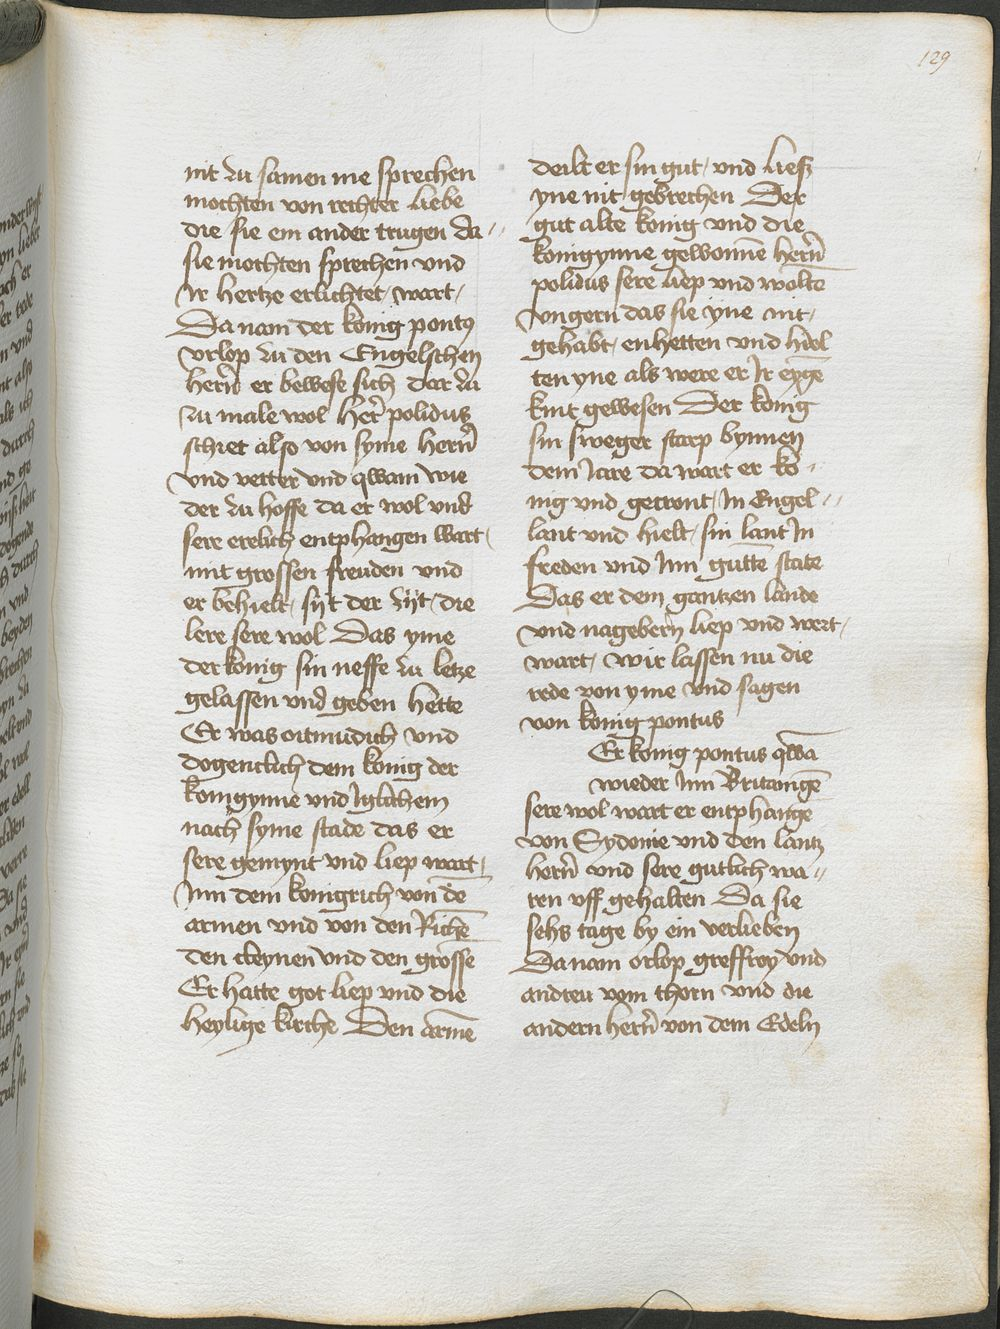 129
nit zu samen me sprechen
mochten von rechter liebe
die sie ein ander trugen da-
sie mochten sprechen und
Ir hertze erlichtet wart
Da nam der konig pontus
vrlop zu den Engelschen
hern̄ er bewose sich dar zu
zu male wol Her polidus
schiet also von syme hern̄
und vetter und qwam wie
der zu hoffe da er wol und
sere erelich entphangen wart
mit grossen freuden und
er behielt sijt der zijt die
lere sere wol Das yme
der konig sin neffe zu letze
gelassen und geben hette
Er was oitmudich und
dogentlich dem konig der
konigynne und Iglichem
nach syme stade das er
sere gemynt und liep wart
Inn dem konigrich von dē
armen und von den Richē
den cleynen und den grossē
Er hatte got liep und die
heylige kirche Den armē
deilt er sin gut und liesz
yne nit gebrechen Der
gut alte konig und die
konigynne gewonnē hern̄
polidus sere liep und woltē
ungern das sie yne nit
gehabt enhetten und hiel
ten yne als were er Ir eygē
kint gewesen Der konig
sin sweger starp bynnen
dem Jare da wart er ko-
nig und getront In Engel-
lant und hielt sin lant In
freden und Inn guttē state
Das er dem gantzen lande
und nagebern̄ liep und wert
wart wir lassen nu die
rede von yme und sagen
von konig pontus
Er konig pontus qwā
wieder Inn Britangē
sere wol wart er entphangē
von Sydonie und den lantz
hern̄ und sere gutlich wa-
ren uff gehalten Da sie
sehs tage by ein verlieben
Da nam orlop greffroy und
andreu vom thorn und die
andern hern̄ von dem Edeln